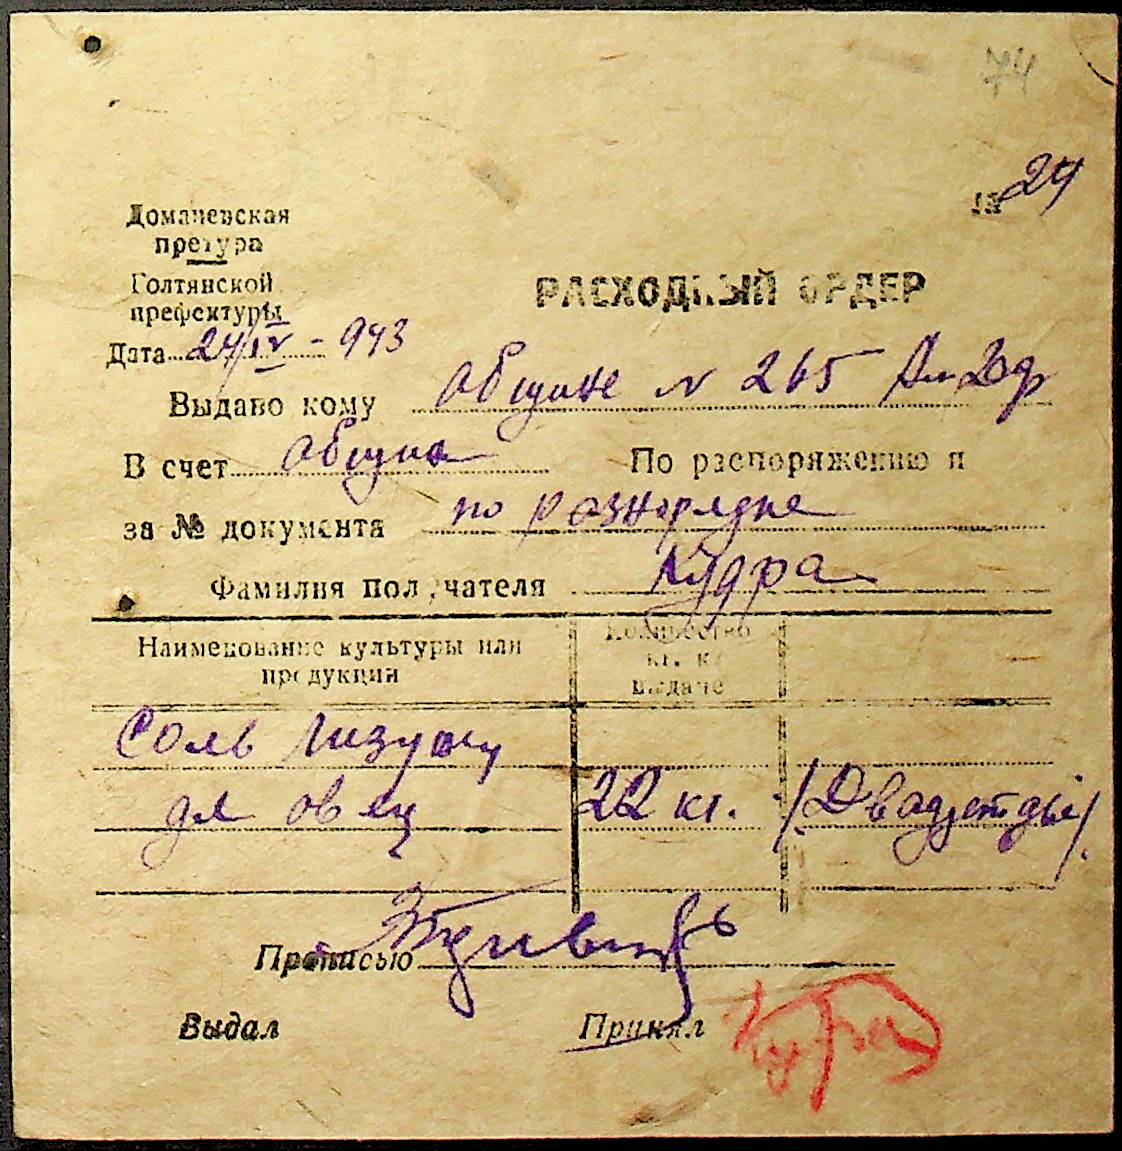 74
№ 24
Доманевская
претура
Голтянской
префектуры
РАСХОДНЫЙ ОРДЕР
Дата 24/IV - 943
Выдано кому общине № 265
В счет община По распоряжению и
за № документа по разнорядке
Фамилия получателя Кудра
Наименование культуры или
продукции
Количество
кг. к
выдаче
Соль лизунец
для овец 22 кг. /Двадцать два/.
Прописью
Выдал Принял Кудра